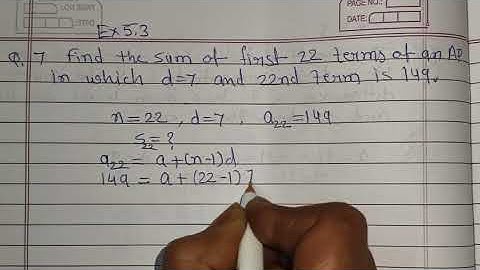 PAGE No.:
DATE:
Ex 5.3
Q. 7 find the sum of first 22 terms of an AP
in which d=7 and 22nd term is 149.
n=22, d=7, a₂₂=149
S₂₂=?
a₂₂ = a+(n-1)d
149 = a+(22-1)7